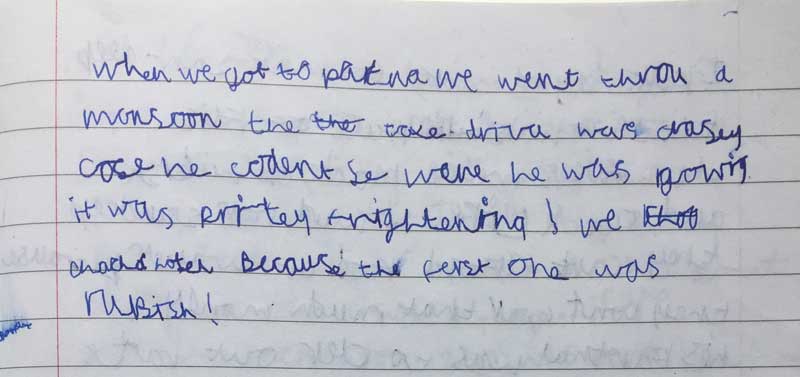 when we got to patna we went throu a
monsoon the the taxe driva was crasey
cose he codent se were he was gowing
it was pritey frightening! we
chachd hotel Because the ferst one was
ruBish!